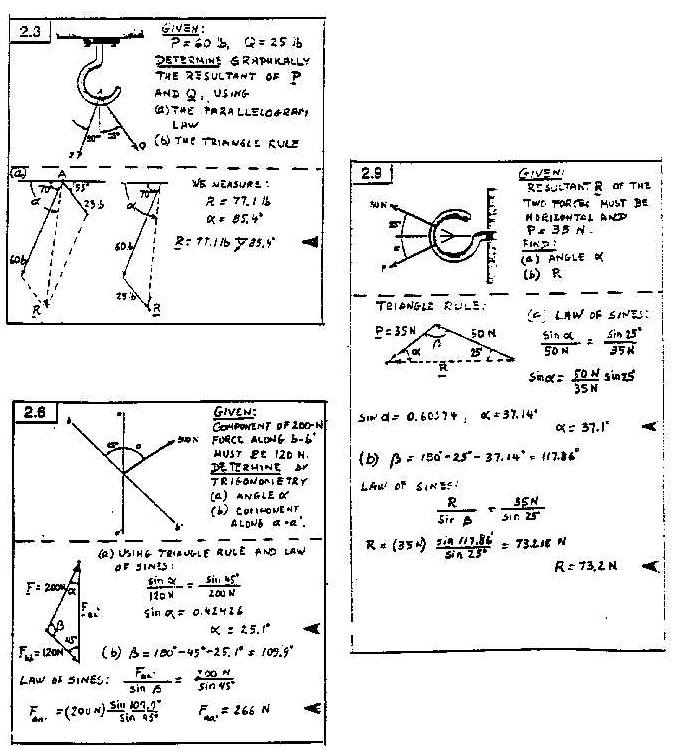 2.3
GIVEN:
P = 60 lb, Q = 25 lb
DETERMINE GRAPHICALLY
THE RESULTANT OF P
AND Q, USING
(a) THE PARALLELOGRAM
LAW
(b) THE TRIANGLE RULE
A
Q
(a)
A
70°
55°
α
25 lb
60 lb
R
70°
α
60 lb
25 lb
R
WE MEASURE:
R = 77.1 lb
α = 85.4°
R = 77.1 lb 85.4°
2.6
GIVEN:
COMPONENT OF 200-N
FORCE ALONG b-b'
MUST BE 120 N.
DETERMINE BY
TRIGONOMETRY
(a) ANGLE α
(b) COMPONENT
ALONG a-a'.
a
b
α
b'
a'
(a) USING TRIANGLE RULE AND LAW
OF SINES:
F = 200N
α
β
45°
F bb' = 120N
F aa'
sin α / 120 N = sin 45° / 200 N
sin α = 0.42426
α = 25.1°
(b) β = 180° - 45° - 25.1° = 109.9°
LAW OF SINES: F aa' / sin β = 200 N / sin 45°
F aa' = (200 N) sin 109.9° / sin 45°
F aa' = 266 N
2.9
GIVEN:
RESULTANT R OF THE
TWO FORCES MUST BE
HORIZONTAL AND
P = 35 N.
FIND:
(a) ANGLE α
(b) R
50N
25°
α
P
TRIANGLE RULE:
P = 35N
50N
β
α
25°
R
(a) LAW OF SINES:
sin α / 50 N = sin 25° / 35 N
sin α = 50 N / 35 N sin 25°
sin α = 0.60374, α = 37.14°
α = 37.1°
(b) β = 180° - 25° - 37.14° = 117.86°
LAW OF SINES:
R / sin β = 35N / sin 25°
R = (35 N) sin 117.86° / sin 25° = 73.218 N
R = 73.2 N